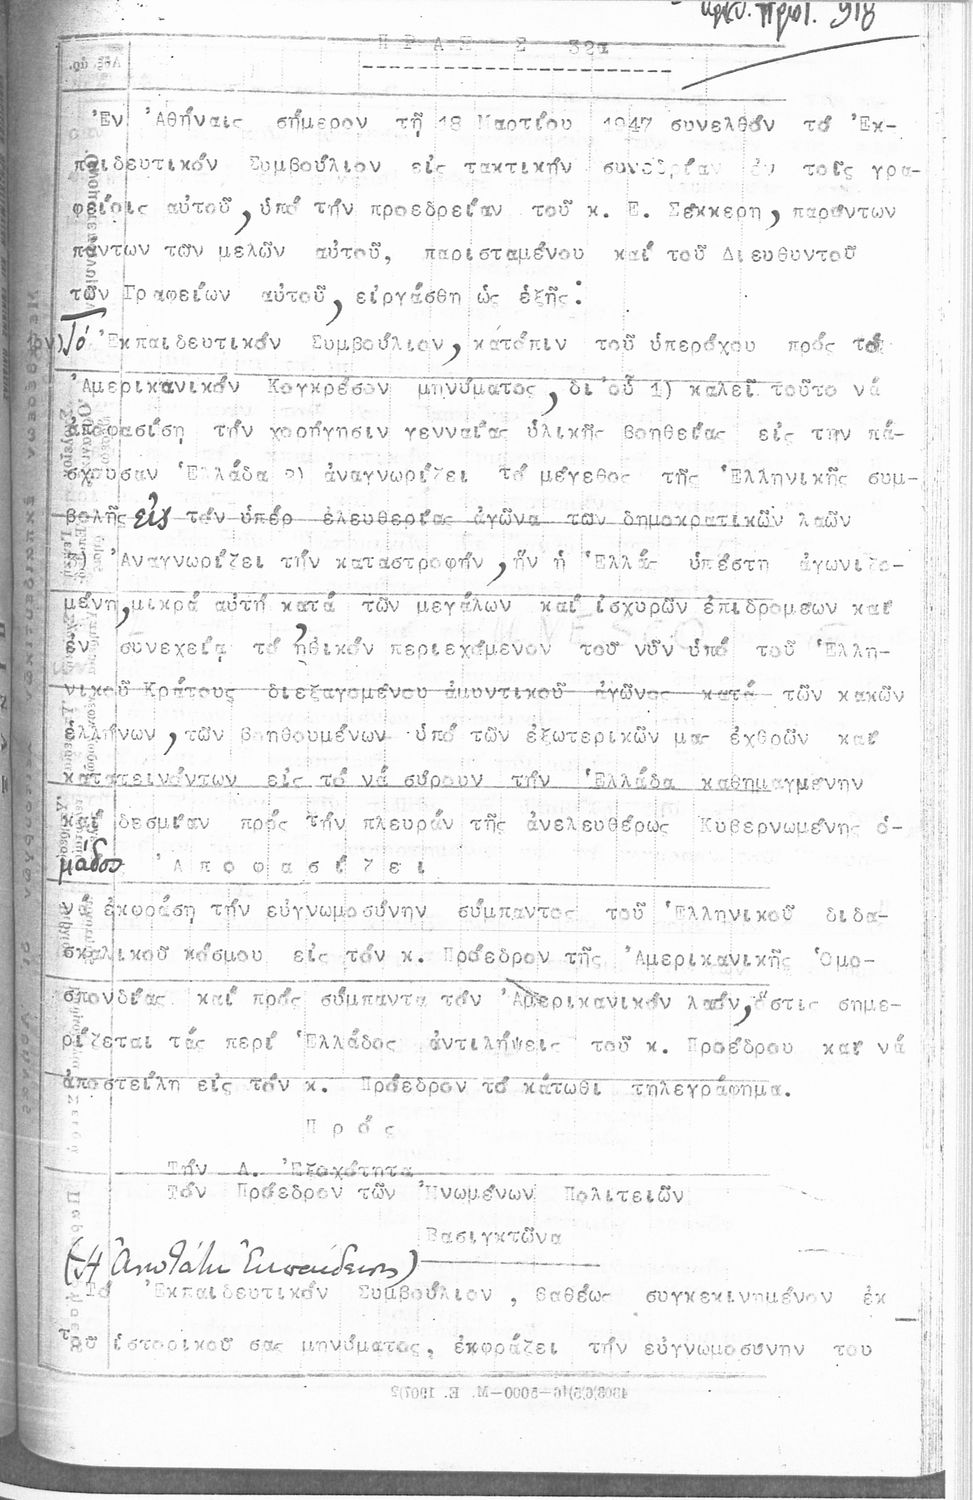 Π Ρ Α Ξ Ι Σ 32α
Ἐν Ἀθήναις σήμερον τῇ 18 Μαρτίου 1947 συνελθόν τό Ἐκ-
παιδευτικόν Συμβούλιον εἰς τακτικήν συνεδρίαν ἐν τοῖς γρα-
φείοις αὐτοῦ, ὑπό τήν προεδρείαν τοῦ κ. Ε. Σέκκερη, παρόντων
πάντων τῶν μελῶν αὐτοῦ, παρισταμένου καί τοῦ Διευθυντοῦ
τῶν Γραφείων αὐτοῦ, εἰργάσθη ὡς ἑξῆς:
Τό Ἐκπαιδευτικόν Συμβούλιον, κατόπιν τοῦ ὑπερόχου πρός τό
Ἀμερικανικόν Κογκρέσον μηνύματος, δι'οὗ 1) καλεῖ τοῦτο νά
ἀποφασίσῃ τήν χορήγησιν γενναίας ὑλικῆς βοηθείας εἰς την πά-
σχουσαν Ἑλλάδα 2) ἀναγνωρίζει τό μέγεθος τῆς Ἑλληνικῆς συμ-
βολῆς εἰς τόν ὑπέρ ἐλευθερίας ἀγῶνα των δημοκρατικῶν λαῶν
3) Ἀναγνωρίζει τήν καταστροφήν, ἥν ἡ Ἑλλάς ὑπέστη ἀγωνιζο-
μένη, μικρά αὐτή κατά τῶν μεγάλων καί ἰσχυρῶν ἐπιδρομέων και
ἐν συνεχείᾳ τό ἠθικόν περιεχόμενον τοῦ νῦν ὑπό τοῦ Ἑλλη-
νικοῦ Κράτους διεξαγομένου ἀμυντικοῦ ἀγῶνος κατά τῶν κακῶν
ἑλλήνων, τῶν βοηθουμένων ὑπό τῶν ἐξωτερικῶν μας ἐχθρῶν καί
κατατεινόντων εἰς τό νά σύρουν τήν Ἑλλάδα καθημαγμένην
καί δεσμίαν πρός τήν πλευράν τῆς ἀνελευθέρως Κυβερνωμένης ὁ-
μάδος Ἀ π ο φ α σ ί ζ ε ι
νά ἐκφράσῃ τήν εὐγνωμοσύνην σύμπαντος τοῦ Ἑλληνικοῦ διδα-
σκαλικοῦ κόσμου εἰς τόν κ. Πρόεδρον τῆς Ἀμερικανικῆς Ὁμο-
σπονδίας καί πρός σύμπαντα τόν Ἀμερικανικόν λαόν, ὅστις σημε-
ρίζεται τάς περί Ἑλλάδος ἀντιλήψεις τοῦ κ. Προέδρου καί νά
ἀποστείλῃ εἰς τόν κ. Πρόεδρον τό κάτωθι τηλεγράφημα.
Π ρ ό ς
Τήν Α. Ἐξοχότητα
Τόν Πρόεδρον τῶν Ἡνωμένων Πολιτειῶν
Βασιγκτῶνα
Τό Ἐκπαιδευτικόν Συμβούλιον, βαθέως συγκεκινημένον ἐκ
τοῦ ἱστορικοῦ σας μηνύματος, ἐκφράζει τήν εὐγνωμοσύνην του